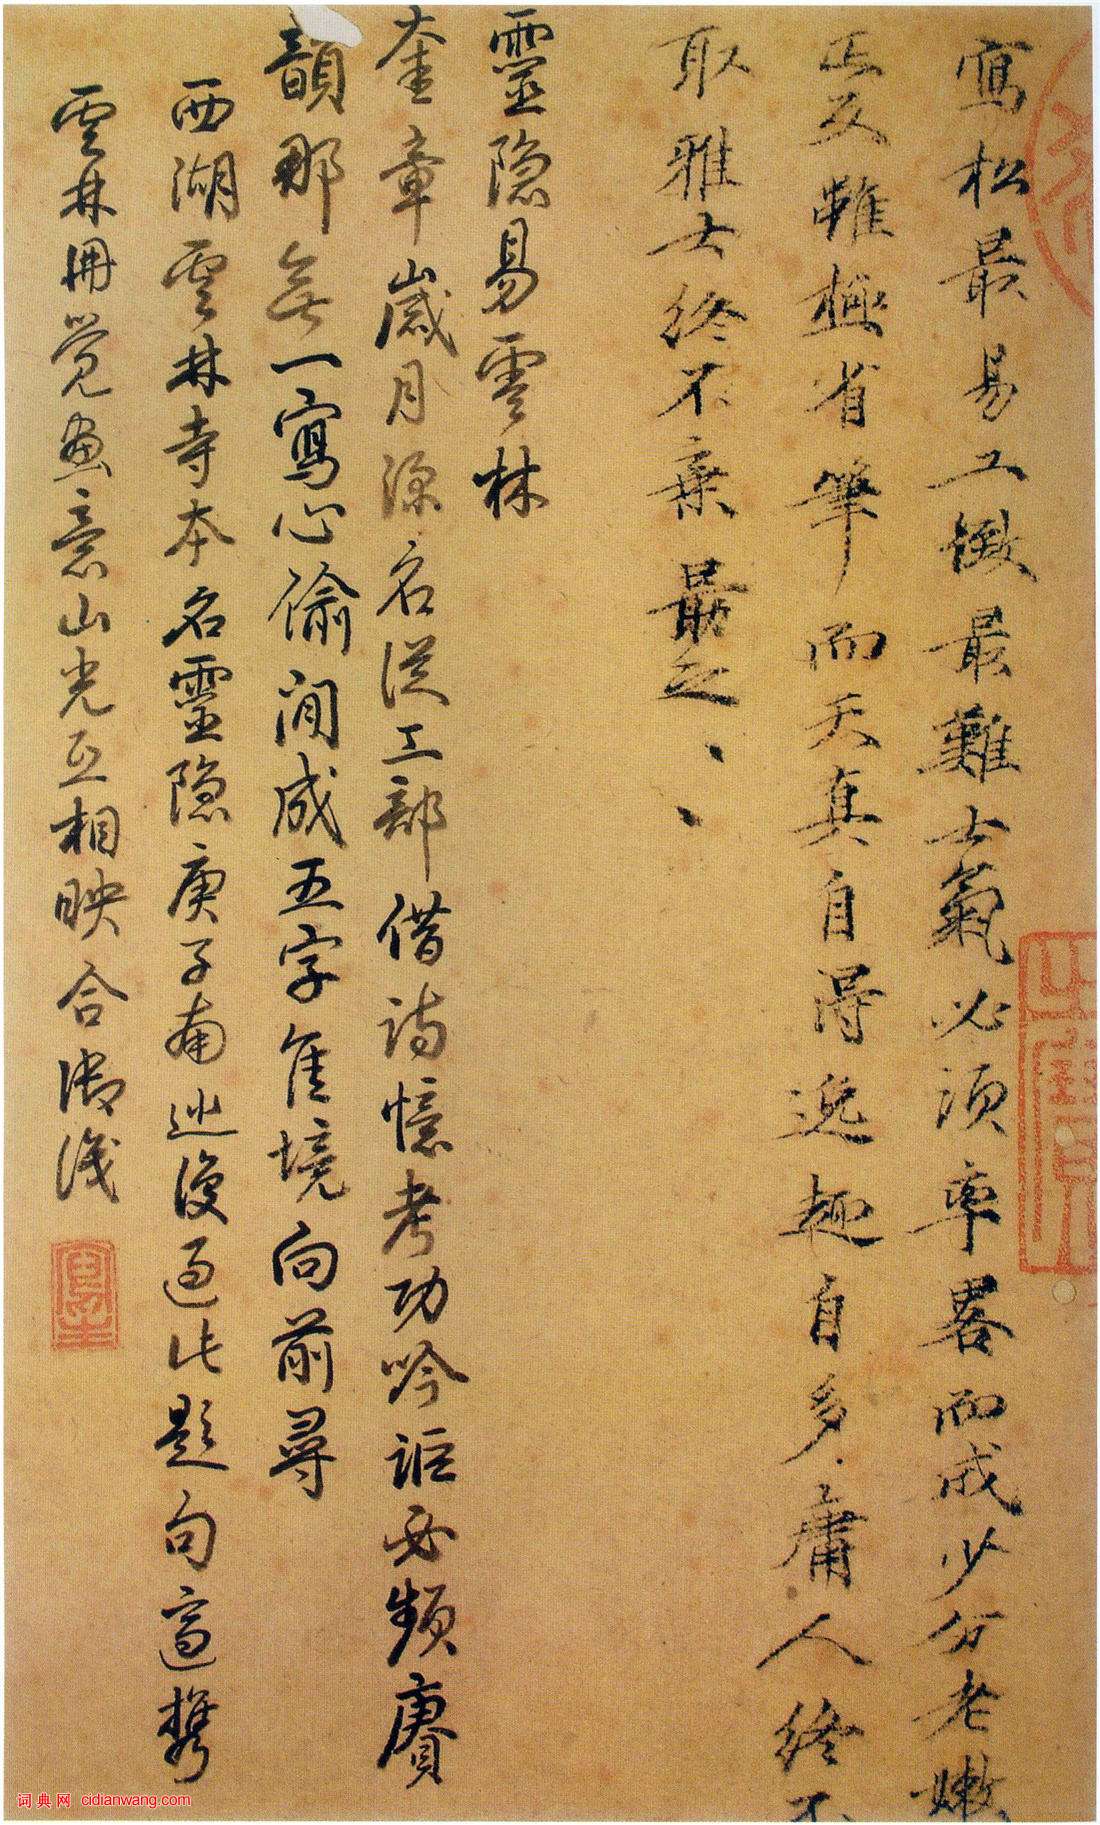 寫松最易工緻最難士氣必須率畧而成少分老嫩
雖極省筆而天真自得逸趣自多庸人終不
取雅士終不棄勗之、、
靈隱易雲林
奎章歲月深名從工部借詩憶考功吟詎必頻賡
韻那無一寫心偷閒成五字隹境向前尋
西湖雲林寺本名靈隱庚子南巡復過此題句適攜
雲林冊覺畫意山光互相映合御識
词典网 cidianwang.com